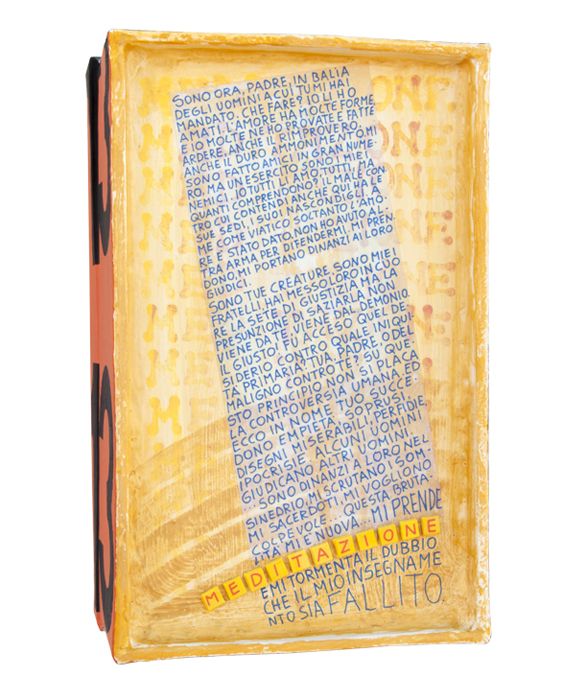 SONO ORA, PADRE, IN BALIA
DEGLI UOMINI A CUI TU MI HAI
MANDATO. CHE FARE? IO LI HO
AMATI. L'AMORE HA MOLTE FORME,
E IO MOLTE NE HO PROVATE E FATTE
ARDERE, ANCHE IL RIMPROVERO,
ANCHE IL DURO AMMONIMENTO. MI
SONO FATTO AMICI IN GRAN NUME-
RO, MA UN ESERCITO SONO I MIEI
NEMICI. IO TUTTI LI AMO, TUTTI. MA
QUANTI COMPRENDONO? IL MALE CON
TRO CUI CONTENDI ANCHE QUI HA LE
SUE SEDI, I SUOI NASCONDIGLI. A
ME COME VIATICO SOLTANTO L'AMO
RE È STATO DATO. NON HO AVUTO AL
TRA ARMA PER DIFENDERMI. MI PREN
DONO, MI PORTANO DINANZI AI LORO
GIUDICI.
SONO TUE CREATURE, SONO MIEI
FRATELLI, HAI MESSO LORO IN CUO
RE LA SETE DI GIUSTIZIA MA LA
PRESUNZIONE DI SAZIARLA NON
VIENE DA TE VIENE DAL DEMONIO.
IL GIUSTO FU ACCESO QUEL DE
SIDERIO CONTRO QUALE INIQUI
TÀ PRIMARIA? TUA, PADRE, O DEL
MALIGNO CONTRO TE? SU QUE
STO PRINCIPIO NON SI PLACA
LA CONTROVERSIA UMANA. ED
ECCO IN NOME TUO SUCCE
DONO EMPIETÀ, SOPRUSI,
DISEGNI MISERABILI, PERFIDIE,
IPOCRISIE. ALCUNI UOMINI
GIUDICANO ALTRI UOMINI.
SONO DINANZI A LORO NEL
SINEDRIO. MI SCRUTANO I SOM
MI SACERDOTI. MI VOGLIONO
COLPEVOLE... QUESTA BRUTA-
LITÀ MI È NUOVA... MI PRENDE
MEDITAZIONE
E MI TORMENTA IL DUBBIO
CHE IL MIO INSEGNAME
NTO SIA FALLITO.